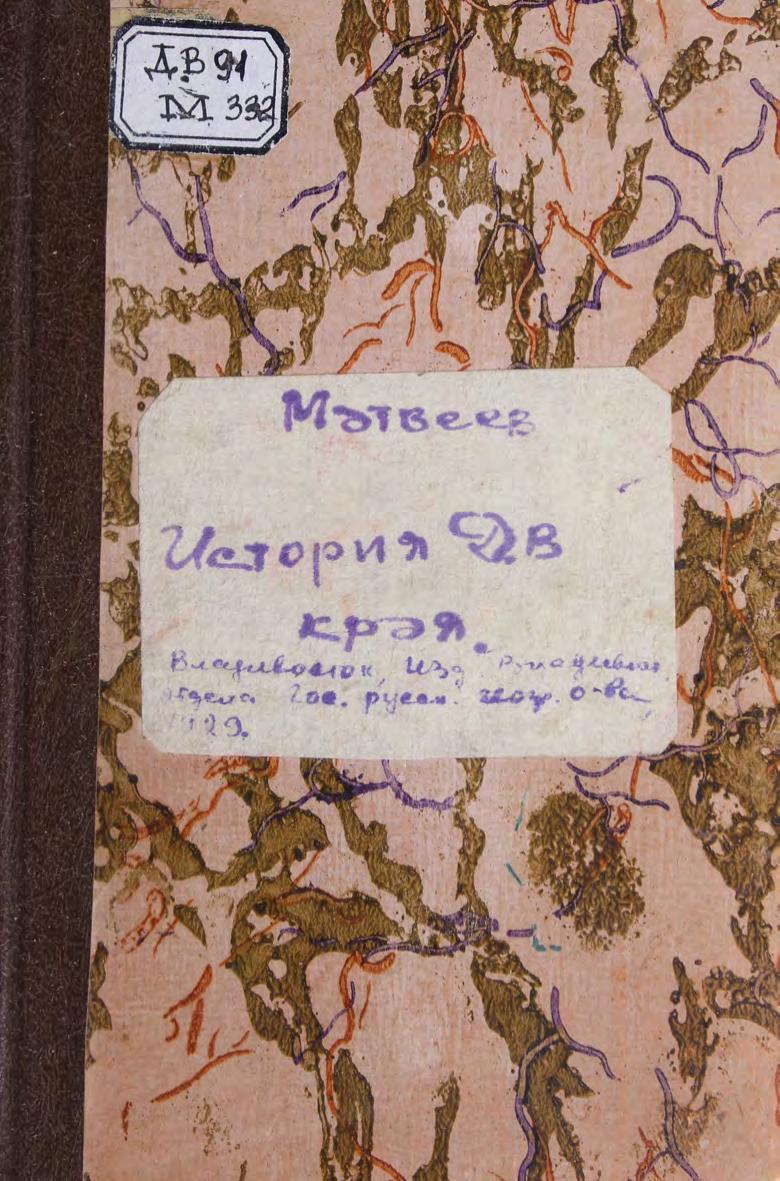 Д.В 91
М 332
Матвеев
История Д.В
края.
Владивосток, Изд.
отдела Гос. русск. геогр. о-ва,
1929.